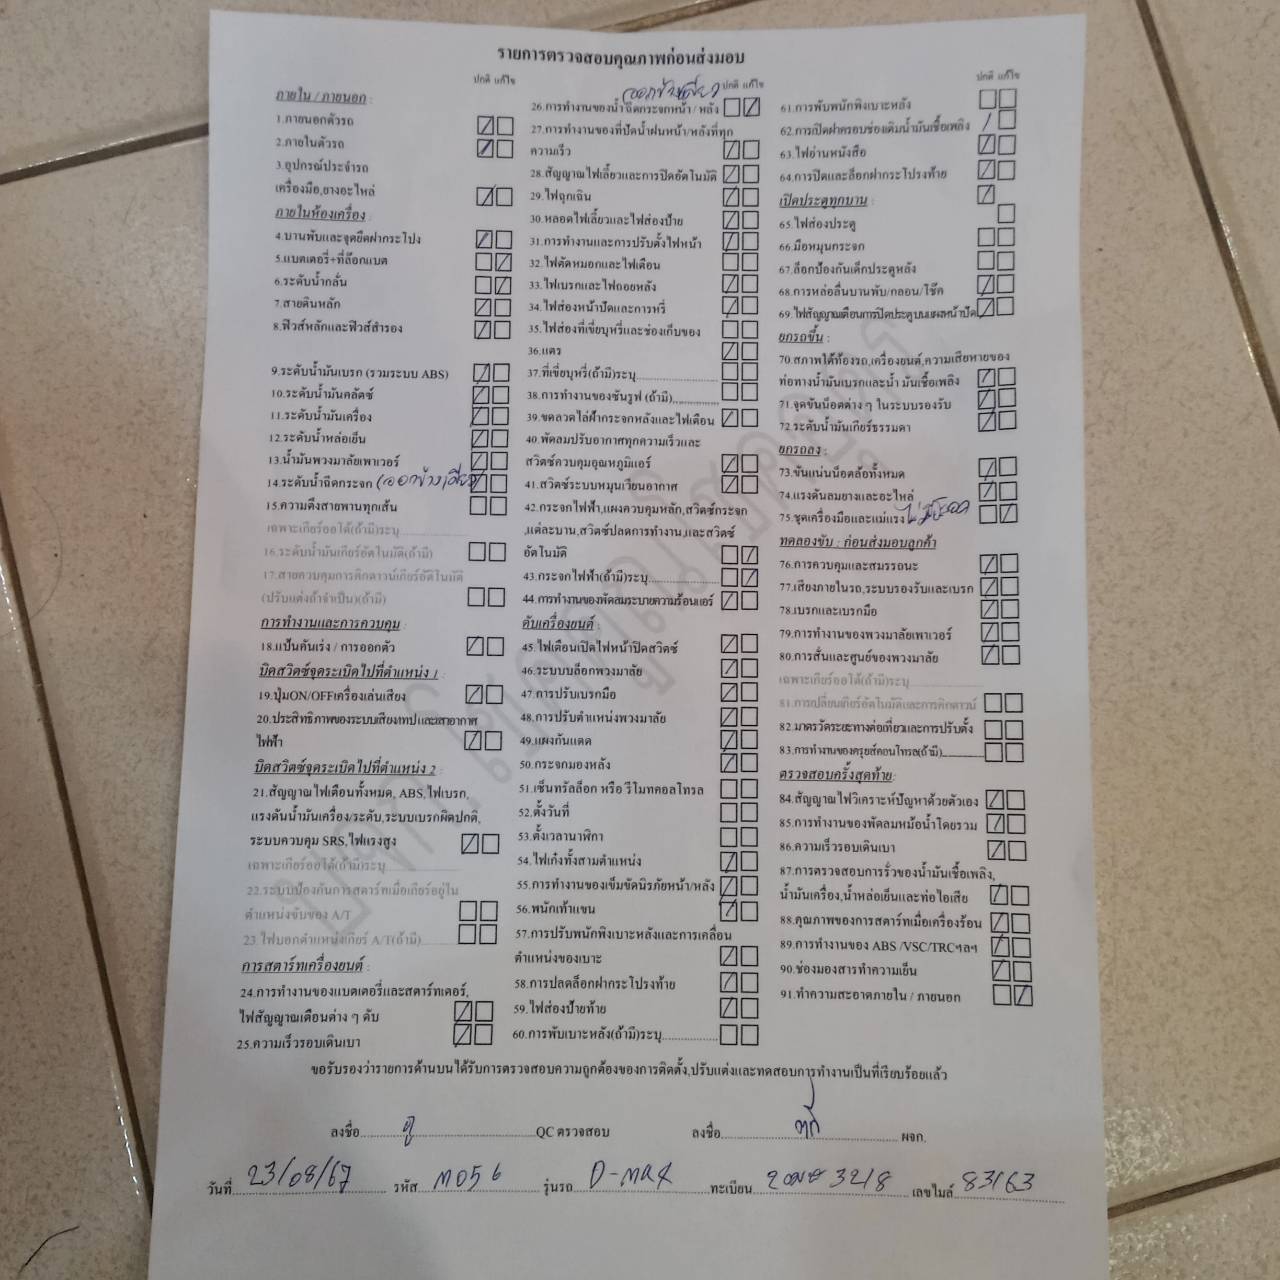 รายการตรวจสอบคุณภาพก่อนส่งมอบ
ปกติ แก้ไข
ภายใน / ภายนอก :
1.ภายนอกตัวรถ
2.ภายในตัวรถ
3.อุปกรณ์ประจำรถ
เครื่องมือ,ยางอะไหล่
ภายในห้องเครื่อง :
4.บานพับและจุดยึดฝากระโปง
5.แบตเตอรี่+ที่ล็อกแบต
6.ระดับน้ำกลั่น
7.สายดินหลัก
8.ฟิวส์หลักและฟิวส์สำรอง
9.ระดับน้ำมันเบรก (รวมระบบ ABS)
10.ระดับน้ำมันคลัตช์
11.ระดับน้ำมันเครื่อง
12.ระดับน้ำหล่อเย็น
13.น้ำมันพวงมาลัยเพาเวอร์
14.ระดับน้ำฉีดกระจก (ออกข้างเดียว)
15.ความตึงสายพานทุกเส้น
เฉพาะเกียร์ออโต้(ถ้ามี)ระบุ
16.ระดับน้ำมันเกียร์อัตโนมัติ(ถ้ามี)
17.สายควบคุมการคิกดาวน์เกียร์อัติโนมัติ
(ปรับแต่งถ้าจำเป็น)(ถ้ามี)
การทำงานและการควบคุม :
18.แป้นคันเร่ง / การออกตัว
บิดสวิตซ์จุดระเบิดไปที่ตำแหน่ง 1 :
19.ปุ่มON/OFFเครื่องเล่นเสียง
20.ประสิทธิภาพของระบบเสียง/เทปและเสาอากาศ
ไฟฟ้า
บิดสวิตซ์จุดระเบิดไปที่ตำแหน่ง 2 :
21.สัญญาณไฟเตือนทั้งหมด, ABS,ไฟเบรก,
แรงดันน้ำมันเครื่อง/ระดับ,ระบบเบรกผิดปกติ,
ระบบควบคุม SRS,ไฟแรงสูง
เฉพาะเกียร์ออโต้(ถ้ามี)ระบุ
22.ระบบป้องกันการสตาร์ทเมื่อเกียร์อยู่ใน
ตำแหน่งขับของ A/T
23.ไฟบอกตำแหน่งเกียร์ A/T(ถ้ามี)
การสตาร์ทเครื่องยนต์ :
24.การทำงานของแบตเตอรี่และสตาร์ทเตอร์,
ไฟสัญญาณเตือนต่าง ๆ ดับ
25.ความเร็วรอบเดินเบา
(ออกข้างเดียว)
ปกติ แก้ไข
26.การทำงานของน้ำฉีดกระจกหน้า / หลัง
27.การทำงานของที่ปัดน้ำฝนหน้า/หลังที่ทุก
ความเร็ว
28.สัญญาณไฟเลี้ยวและการปิดอัตโนมัติ
29.ไฟฉุกเฉิน
30.หลอดไฟเลี้ยวและไฟส่องป้าย
31.การทำงานและการปรับตั้งไฟหน้า
32.ไฟตัดหมอกและไฟเตือน
33.ไฟเบรกและไฟถอยหลัง
34.ไฟส่องหน้าปัดและการหรี่
35.ไฟส่องที่เขี่ยบุหรี่และช่องเก็บของ
36.แตร
37.ที่เขี่ยบุหรี่(ถ้ามี)ระบุ
38.การทำงานของซันรูฟ (ถ้ามี)
39.ขดลวดไล่ฝ้ากระจกหลังและไฟเตือน
40.พัดลมปรับอากาศทุกความเร็วและ
สวิตซ์ควบคุมอุณหภูมิแอร์
41.สวิตซ์ระบบหมุนเวียนอากาศ
42.กระจกไฟฟ้า,แผงควบคุมหลัก,สวิตซ์กระจก
,แต่ละบาน,สวิตซ์ปลดการทำงาน,และสวิตซ์
อัตโนมัติ
43.กระจกไฟฟ้า(ถ้ามี)ระบุ
44.การทำงานของพัดลมระบายความร้อนแอร์
ดับเครื่องยนต์ :
45.ไฟเตือนเปิดไฟหน้าปิดสวิตซ์
46.ระบบบล็อกพวงมาลัย
47.การปรับเบรกมือ
48.การปรับตำแหน่งพวงมาลัย
49.แผงกันแดด
50.กระจกมองหลัง
51.เซ็นทรัลล็อก หรือ รีโมทคอลโทรล
52.ตั้งวันที่
53.ตั้งเวลานาฬิกา
54.ไฟเก๋งทั้งสามตำแหน่ง
55.การทำงานของเข็มขัดนิรภัยหน้า/หลัง
56.พนักเท้าแขน
57.การปรับพนักพิงเบาะหลังและการเคลื่อน
ตำแหน่งของเบาะ
58.การปลดล็อกฝากระโปรงท้าย
59.ไฟส่องป้ายท้าย
60.การพับเบาะหลัง(ถ้ามี)ระบุ
ปกติ แก้ไข
61.การพับพนักพิงเบาะหลัง
62.การเปิดฝาครอบช่องเติมน้ำมันเชื้อเพลิง
63.ไฟอ่านหนังสือ
64.การปิดและล็อกฝากระโปรงท้าย
เปิดประตูทุกบาน :
65.ไฟส่องประตู
66.มือหมุนกระจก
67.ล็อกป้องกันเด็กประตูหลัง
68.การหล่อลื่นบานพับ/กลอน/โช๊ค
69.ไฟสัญญาณเตือนการปิดประตูบนแผงหน้าปัด
ยกรถขึ้น :
70.สภาพใต้ท้องรถ,เครื่องยนต์,ความเสียหายของ
ท่อทางน้ำมันเบรกและน้ำมันเชื้อเพลิง
71.จุดขันน็อตต่าง ๆ ในระบบรองรับ
72.ระดับน้ำมันเกียร์ธรรมดา
ยกรถลง :
73.ขันแน่นน็อตล้อทั้งหมด
74.แรงดันลมยางและอะไหล่
75.ชุดเครื่องมือและแม่แรง
ทดลองขับ : ก่อนส่งมอบลูกค้า
76.การควบคุมและสมรรถนะ
77.เสียงภายในรถ,ระบบรองรับและเบรก
78.เบรกและเบรกมือ
79.การทำงานของพวงมาลัยเพาเวอร์
80.การสั่นและศูนย์ของพวงมาลัย
เฉพาะเกียร์ออโต้(ถ้ามี)ระบุ
81.การเปลี่ยนเกียร์อัตโนมัติและการคิกดาวน์
82.มาตรวัดระยะทางต่อเที่ยวและการปรับตั้ง
83.การทำงานของครุยส์คอนโทรล(ถ้ามี)
ตรวจสอบครั้งสุดท้าย:
84.สัญญาณไฟวิเคราะห์ปัญหาด้วยตัวเอง
85.การทำงานของพัดลมหม้อน้ำโดยรวม
86.ความเร็วรอบเดินเบา
87.การตรวจสอบการรั่วของน้ำมันเชื้อเพลิง,
น้ำมันเครื่อง,น้ำหล่อเย็นและท่อไอเสีย
88.คุณภาพของการสตาร์ทเมื่อเครื่องร้อน
89.การทำงานของ ABS /VSC/TRCฯลฯ
90.ช่องมองสารทำความเย็น
91.ทำความสะอาดภายใน / ภายนอก
ขอรับรองว่ารายการด้านบนได้รับการตรวจสอบความถูกต้องของการติดตั้ง,ปรับแต่งและทดสอบการทำงานเป็นที่เรียบร้อยแล้ว
ลงชื่อ QC ตรวจสอบ ลงชื่อ ผจก.
วันที่ 23/08/67 รหัส M056 รุ่นรถ D-max ทะเบียน 3218 เลขไมล์ 83163